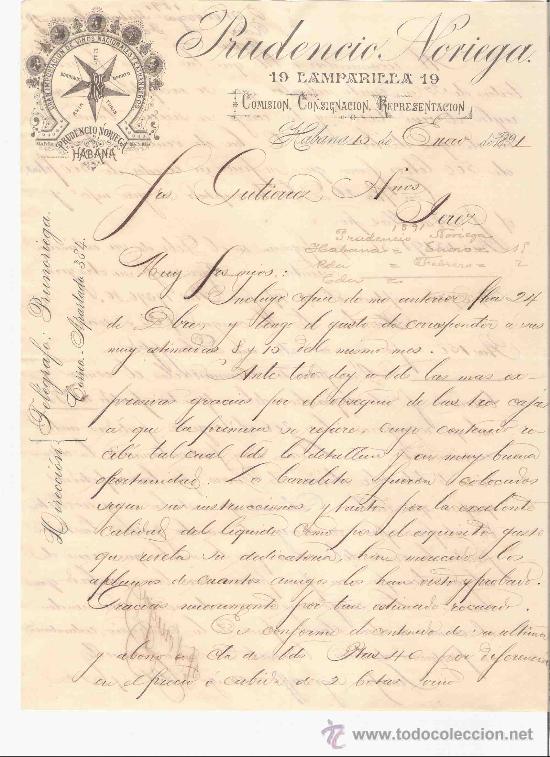 Prudencio Noriega.
19 LAMPARILLA 19
COMISION, CONSIGNACION, REPRESENTACION
PRUDENCIO NORIEGA
HABANA
Habana 15 de Enero de 1891
Sres Gutierrez Hnos
Jerez
1891
Prudencio Noriega
Habana = Enero = 15
Rda = Febrero = 2
Cda =
Dirección { Telégrafo: Prunoriega.
Correo: Apartado 384.
Muy Sres mios:
Incluyo copia de mi anterior fha 24
de Dbre y tengo el gusto de corresponder a sus
muy estimadas 8 y 15 del mismo mes.
Ante todo doy a Uds las mas ex-
presivas gracias por el obsequio de las tres cajas
a que la primera se refiere cuyo contenido re-
cibi tal cual Uds lo detallan y en muy buena
oportunidad. Los barrilitos fueron colocados
segun sus instrucciones y tanto por la excelente
calidad del liquido como por el esquisito gusto
que revela su dedicatoria, han merecido los
aplausos de cuantos amigos los han visto y probado.
Gracias nuevamente por tan estimado recuerdo.
Es conforme el contenido de su ultima
y abono en cta de Uds Ptas 40 por diferencia
en el precio o cabida de 2 botas vino
todocoleccion
www.todocoleccion.net